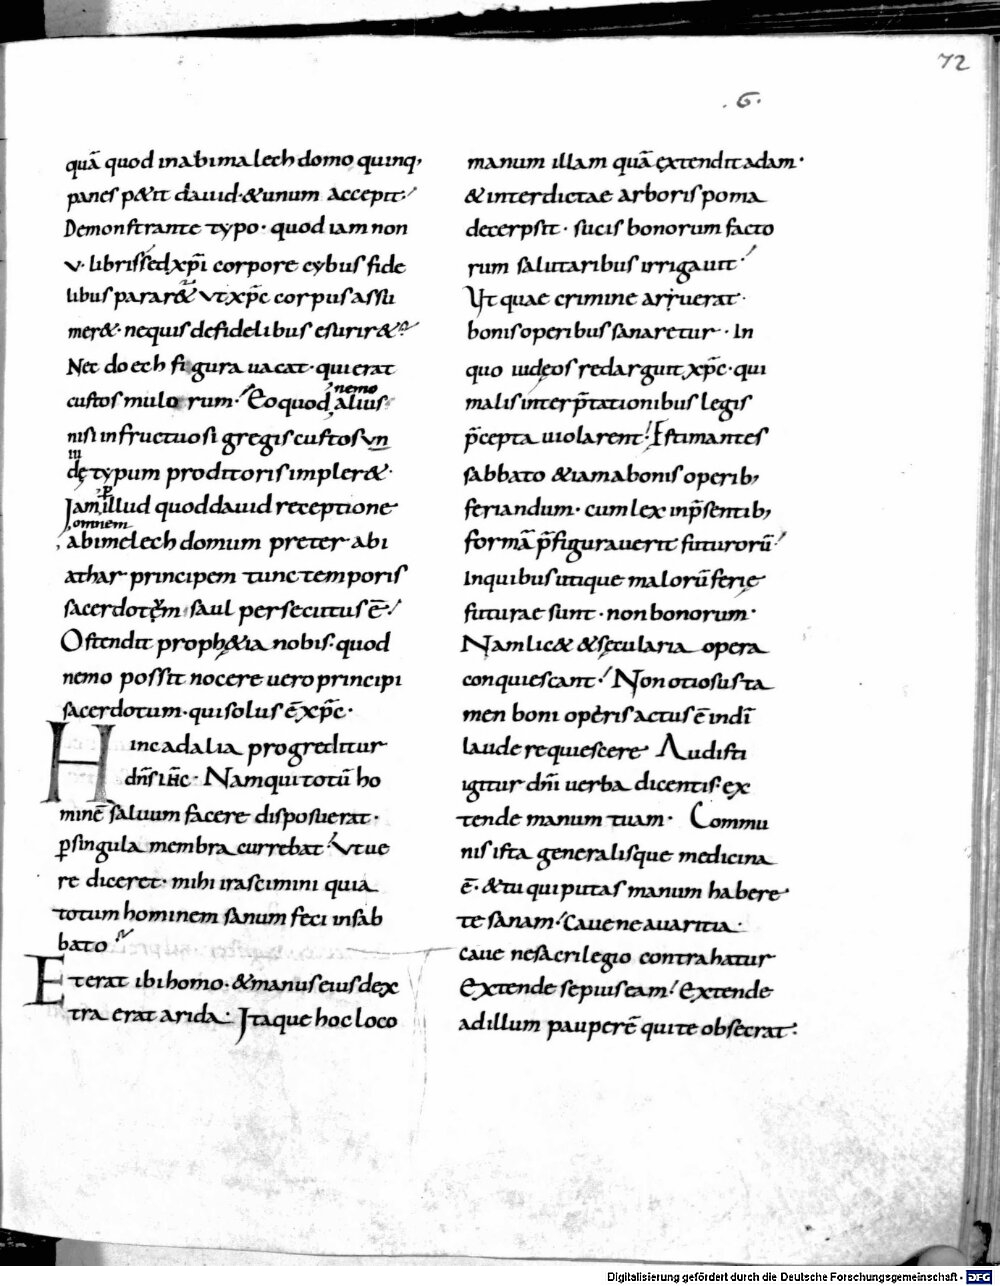 72
.6.
quā quod inabimalech domo quinq;
panes p&it dauid·&unum accepit·
Demonstrante typo· quod iam non
v· libris sed xp̄i corpore cybus fide
libus parar& vt xp̄c corpus assu
mer&· nequis defidelibus esurir&
Nec doech figura uacat· quierat
custos mulorum· Eo quod alius
nemo
nisi infructuosi gregis custos vn
de typum proditoris impler&·
Iam illud quod dauid receptione
omnem
abimelech domum preter abi
athar principem tunc temporis
sacerdotem saul persecutus ē·
Ostendit proph&ia nobis· quod
nemo possit nocere uero principi
sacerdotum· qui solus ē xp̄c·
Hinc ad alia progreditur
dn̄s ih̄c· Nam qui totū ho
minē saluum facere disposuerat·
ꝑ singula membra currebat· Vt ue
re diceret· mihi irascimini quia
totum hominem sanum feci in sab
bato
Et erat ibi homo· & manus eius dex
tra erat arida· Itaque hoc loco
manum illam quā extendit adam·
& interdictae arboris poma
decerpsit· sucis bonorum facto
rum salutaribus irrigauit·
Vt quae crimine arruerat·
bonis operibus sanaretur· In
quo iudęos redarguit xp̄c· qui
malis interp̄tationibus legis
p̄cepta uiolarent· Estimantes
sabbato &iam a bonis operib;
feriandum· cum lex inp̄sentib;
formā p̄figurauerit futurorū·
In quibus utique malorū ferię
futurae sunt· non bonorum·
Nam lic& & sęcularia opera
conquiescant· Non otiosus ta
men boni operis actus ē in dī
laude requiescere Audisti
igitur dn̄i uerba dicentis· ex
tende manum tuam· Commu
nis ista generalisque medicina
ē· & tu qui putas manum habere
te sanam· Caue ne auaritia·
caue ne sacrilegio contrahatur
Extende sepius eam· Extende
ad illum pauperē qui te obsecrat·
Digitalisierung gefördert durch die Deutsche Forschungsgemeinschaft - DFG